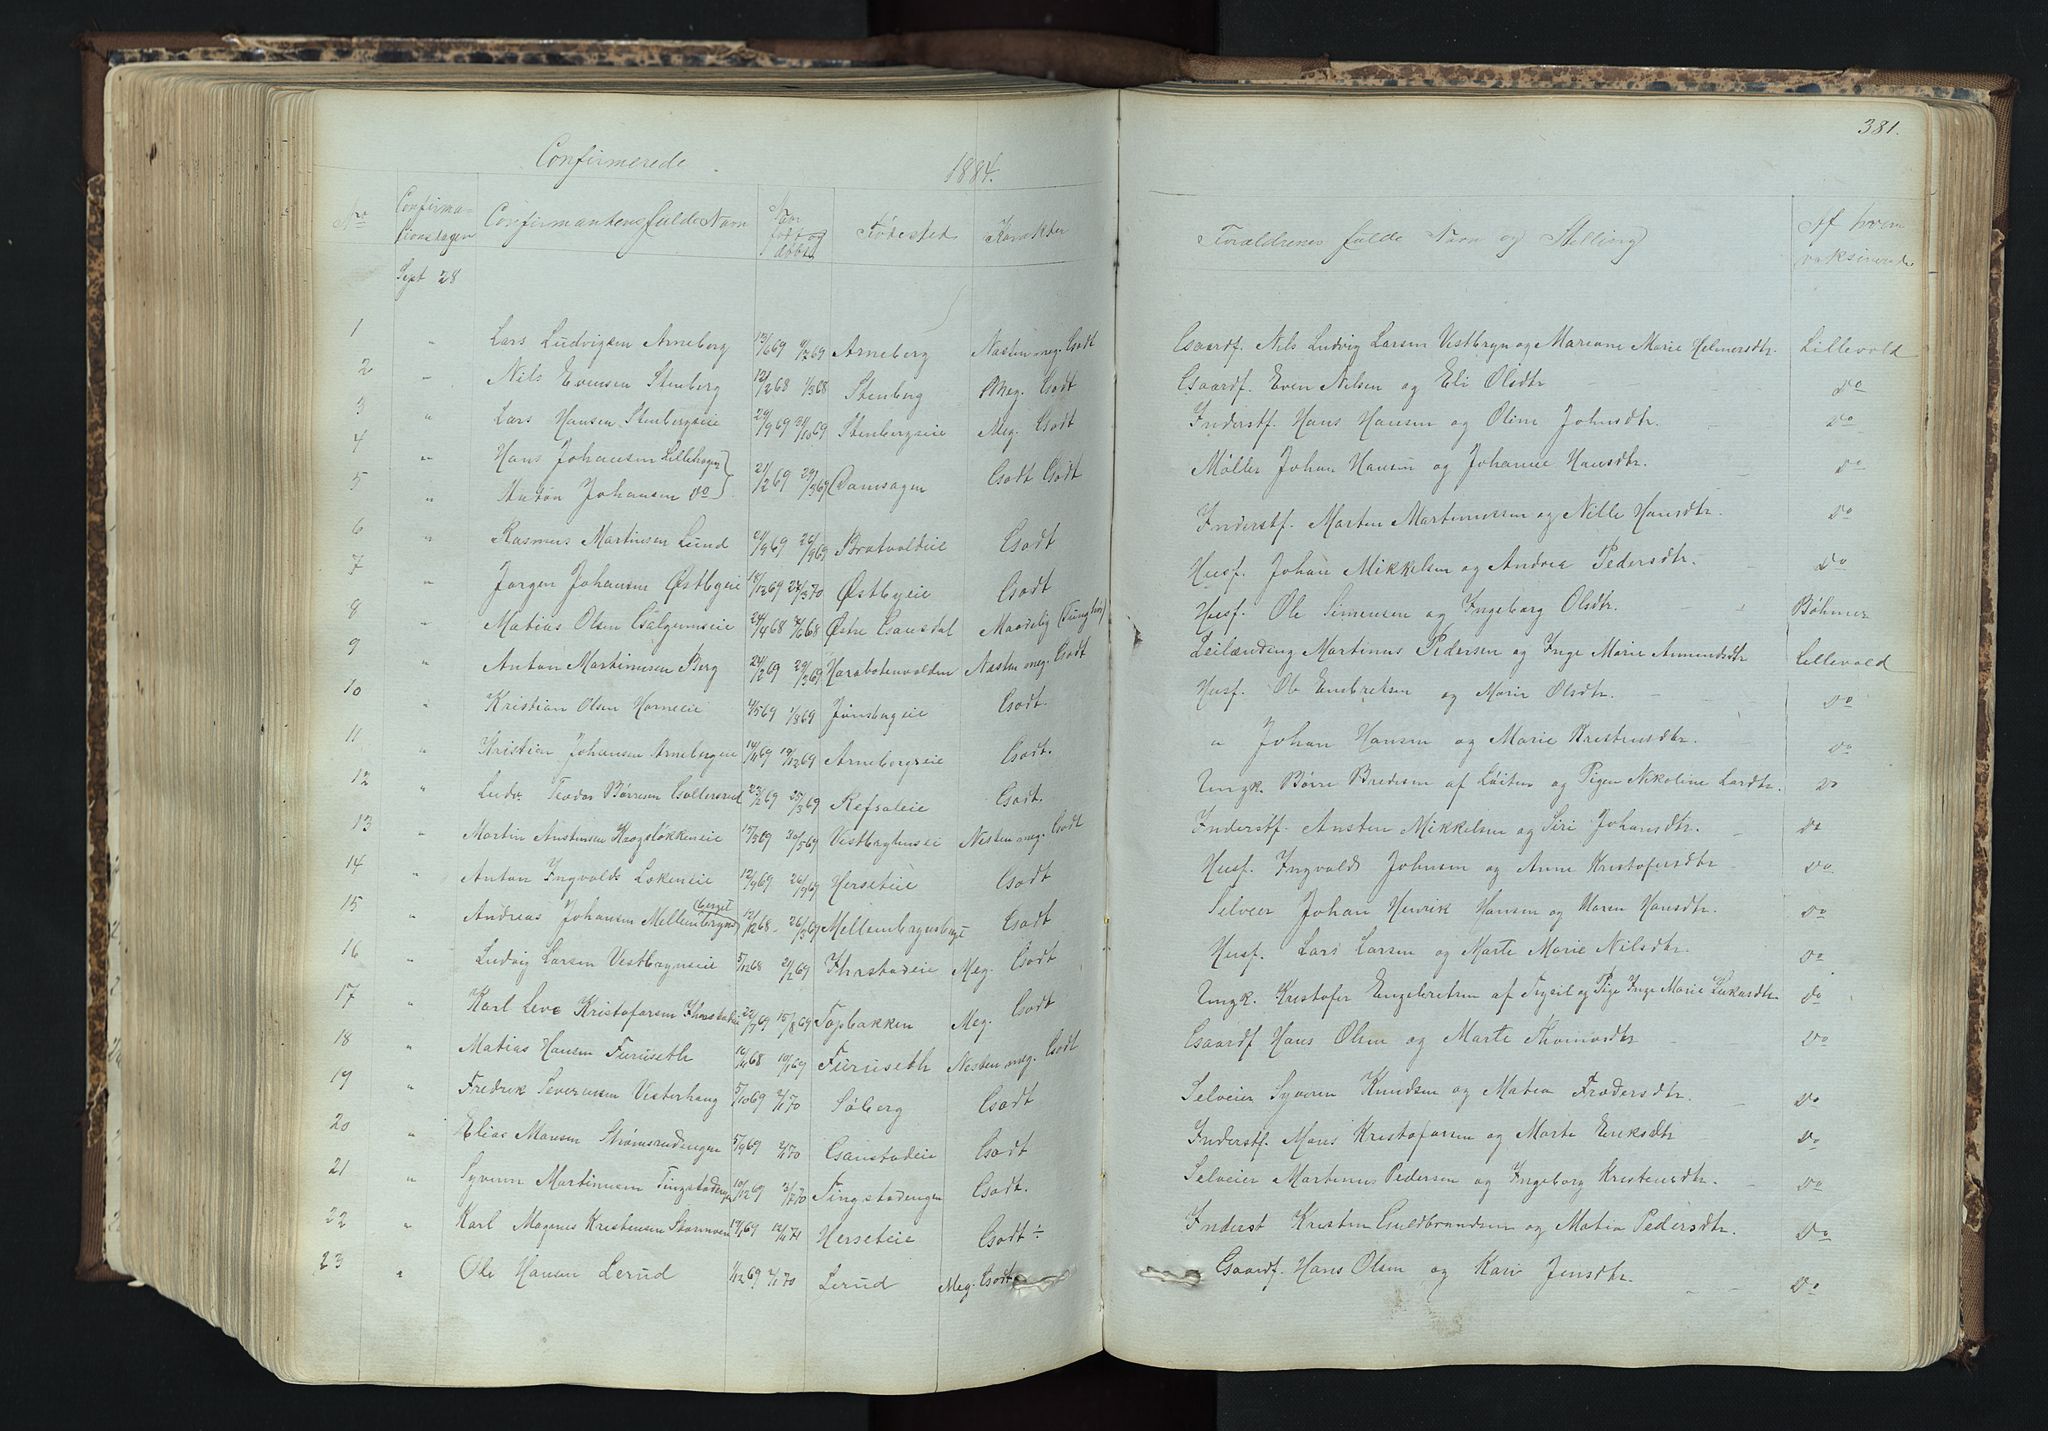 381.
Confirmerede 1884.
No
Confirmationsdagen
Confirmantens fulde Navn
Naar født og døbt
Fødested
Karakter
Forældrenes fulde Navn og Stilling
Af hvem vaksinerede
Sept 28
1 " Lars Ludvigsen Arneberg 13/6 69 69 Arneberg Næsten meg. Godt Gaardf. Nils Ludvig Larsen Vestbryn og Mariane Marie Helmersdtr. Lillevold
2 " Nils Evensen Stenberg 12/2 68 1/3 68 Stenberg Meg. Godt Gaardf. Even Nilsen og Eli Olsdtr do
3 " Lars Hansen Stenbergseie 29/9 69 31/10 69 Stenbergseie Meg. Godt Inderstf. Hans Hansen og Oline Johnsdtr. do
4 " Hans Johansen Lillehagen
5 " Anton Johansen do 21/2 69 29/3 69 Damsagen Godt Godt Møller Johan Hansen og Johanne Hansdtr. do
6 " Rasmus Martinsen Lund 21/9 69 26/9 69 Bratvoldeie Godt Inderstf. Morten Martinussen og Nille Hansdtr. do
7 " Jørgen Johansen Østbyeie 18/12 69 27/3 70 Østbyeie Godt Husf. Johan Mikkelsen og Andrea Pedersdtr. do
8 " Matias Olsen 24/4 68 68 Østre Gaustdal Maadelig Husf. Ole Simensen og Ingeborg Olsdtr. Bøhmer
9 " Anton Martinusen Berg 24/2 69 29/3 69 Næsten meg. Godt Leilænding Martinus Pedersen og Inge Marie Amundsdtr Lillevold
10 " Kristian Olsen Horneeie 4/5 69 1/8 69 Jønsbergeie Godt. Husf. Ole Embretsen og Marie Olsdtr. do
11 " Kristian Johansen Arnebergeie 14/11 69 19/12 69 Arnebergseie Godt. " Johan Hansen og Marie Kristensdtr. do
12 " Ludv. Teodor Børresen 23/2 69 25/3 69 Refsaleie Godt. Ungk. Børre Bredesen af Løiten og Pigen Nikoline Larsdtr. do
13 " Martin Austensen Haagsløkkeneie 15/3 69 30/5 69 Næsten meg. Godt Inderstf. Austen Mikkelsen og Siri Johansdtr. do
14 " Anton Ingvolds Løkeneie 12/9 69 26/9 69 Herseteie Godt Husf. Ingvold Johnsen og Anne Kristofersdtr do
15 " Andreas Johansen Mellembrynsberget 12/12 68 26/3 69 Mellembrynsberget Godt Selveier Johan Henrik Hansen og Maren Hansdtr. do
16 " Ludvig Larsen Vestbrynseie 5/12 68 21/2 69 Ihrstadeie Meg. Godt Husf. Lars Larsen og Marte Marie Nilsdtr. do
17 " Karl Kristofersen Ihrstadeie 22/7 69 15/8 69 Topbakken Meg. Godt Ungk. Kristofer Engebretsen af Trysil og Pige Inge Marie do
18 " Matias Hansen Furuseth 16/11 68 10/1 69 Furuseth Næsten meg. Godt Gaardf Hans Olsen og Marte Thomasdtr do
19 " Fredrik Severinsen Vesterhaug 5/10 69 2/1 70 Søberg Godt Selveier Syveren Knudsen og Matea Fredersdtr. do
20 " Elias Monsen Strømsrudengen 5/9 69 2/1 70 Gaustadeie Godt Inderstf. Mons Kristofersen og Marte Eriksdtr do
21 " Syveren Martinusen Tingstadengen 10/12 69 3/7 70 Tingstadengen Godt. Selveier Martinus Pedersen og Ingeborg Kristensdtr. do
22 " Karl Magnus Kristensen 69 71 Herseteie Godt ÷ Inderst Kristen Guldbrandsen og Matea Pedersdtr. do
23 " Ole Hansen Lerud 1/12 69 2/1 70 Lerud Meg. Godt Gaardf. Hans Olsen og Kari Jensdtr. do